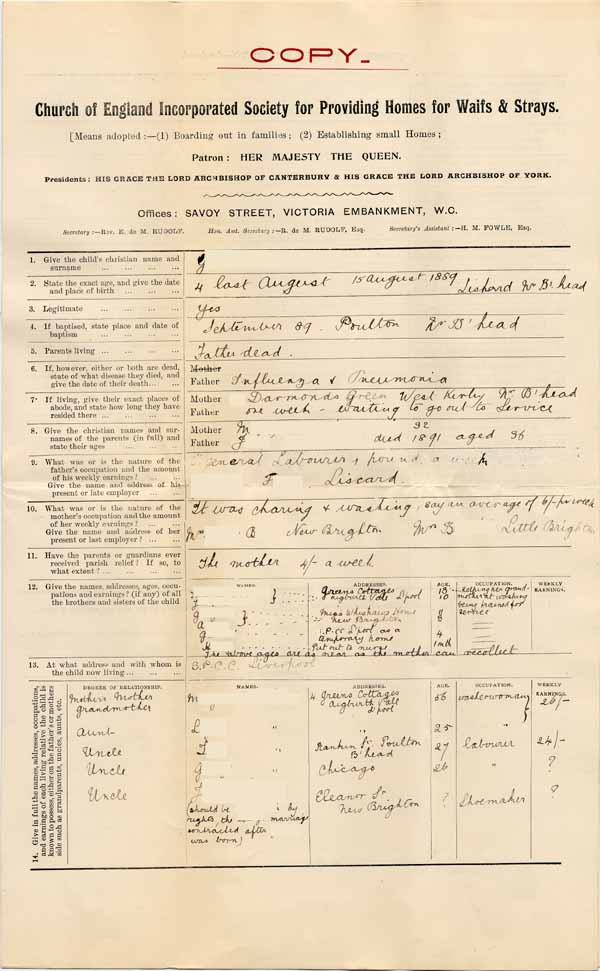 COPY.
Church of England Incorporated Society for Providing Homes for Waifs & Strays.
[Means adopted:—(1) Boarding out in families; (2) Establishing small Homes;
Patron: HER MAJESTY THE QUEEN.
Presidents: HIS GRACE THE LORD ARCHBISHOP OF CANTERBURY & HIS GRACE THE LORD ARCHBISHOP OF YORK.
Offices: SAVOY STREET, VICTORIA EMBANKMENT, W.C.
Secretary:—Rev. E. de M. RUDOLF. Hon. Asst. Secretary:—R. de M. RUDOLF, Esq. Secretary's Assistant:—H. M. FOWLE, Esq.
1. Give the child's christian name and
surname ... ... ... ...
2. State the exact age, and give the date
and place of birth ... ... ...
4 last August 15 August 1889 Liskerrd Nr B'head
3. Legitimate ... ... ... ...
Yes
4. If baptised, state place and date of
baptism ... ... ... ...
September 89. Poulton Nr B'head
5. Parents living ... ... ... ...
Father dead.
6. If, however, either or both are dead,
state of what disease they died, and
give the date of their death... ...
Mother
Father Influenza & Pneumonia
7. If living, give their exact places of
abode, and state how long they have
resided there ... ... ... ...
Mother Darmonds Green West Kirby Nr B'head
Father one week - waiting to go out to service
8. Give the christian names and sur-
names of the parents (in full) and
state their ages ... ... ...
Mother M 32
Father J died 1891 aged 36
9. What was or is the nature of the
father's occupation and the amount
of his weekly earnings? ... ...
Give the name and address of his
present or late employer ... ...
General Labourer 1 pound a week
F Liscard.
10. What was or is the nature of the
mother's occupation and the amount
of her weekly earnings? ... ...
Give the name and address of her
present or last employer? ... ...
It was charing & washing, say an average of 6/- per week
Mrs B New Brighton Mrs B Little Brighton
11. Have the parents or guardians ever
received parish relief? If so, to
what extent? ... ... ... ...
The mother 4/- a week
12. Give the names, addresses, ages, occu-
pations and earnings? (if any) of all
the brothers and sisters of the child
NAMES. ADDRESSES. AGE. OCCUPATION. WEEKLY EARNINGS.
Greens Cottages 13 helping her grand-
Aigburth Vale L'pool 10 mother at washing
being trained for
service
Miss Whishaws Home 8
New Brighton
S.P.C.C L'pool as a 4
temporary home
Put out to nurse 1 mth
The above ages are as near as the mother can recollect
13. At what address and with whom is
the child now living ... ... ...
S.P.C.C. Liverpool
14. Give in full the names, addresses, occupations,
and earnings of each living relative the child is
known to possess, either on the father's or mother's
side such as grandparents, uncles, aunts, etc.
DEGREE OF RELATIONSHIP. NAMES. ADDRESSES. AGE. OCCUPATION. WEEKLY EARNINGS.
Mothers Mother M 4 Greens Cottages 56 washerwoman 26/-
Grandmother Aigburth Vale
L'pool
Aunt L " 25 "
Uncle J Rankin St Poulton 27 Labourer 24/-
B'head
Uncle G Chicago 26 " ?
Uncle J Eleanor St ? Shoemaker ?
New Brighton
(should be by
rights, the marriage
contracted after
was born)